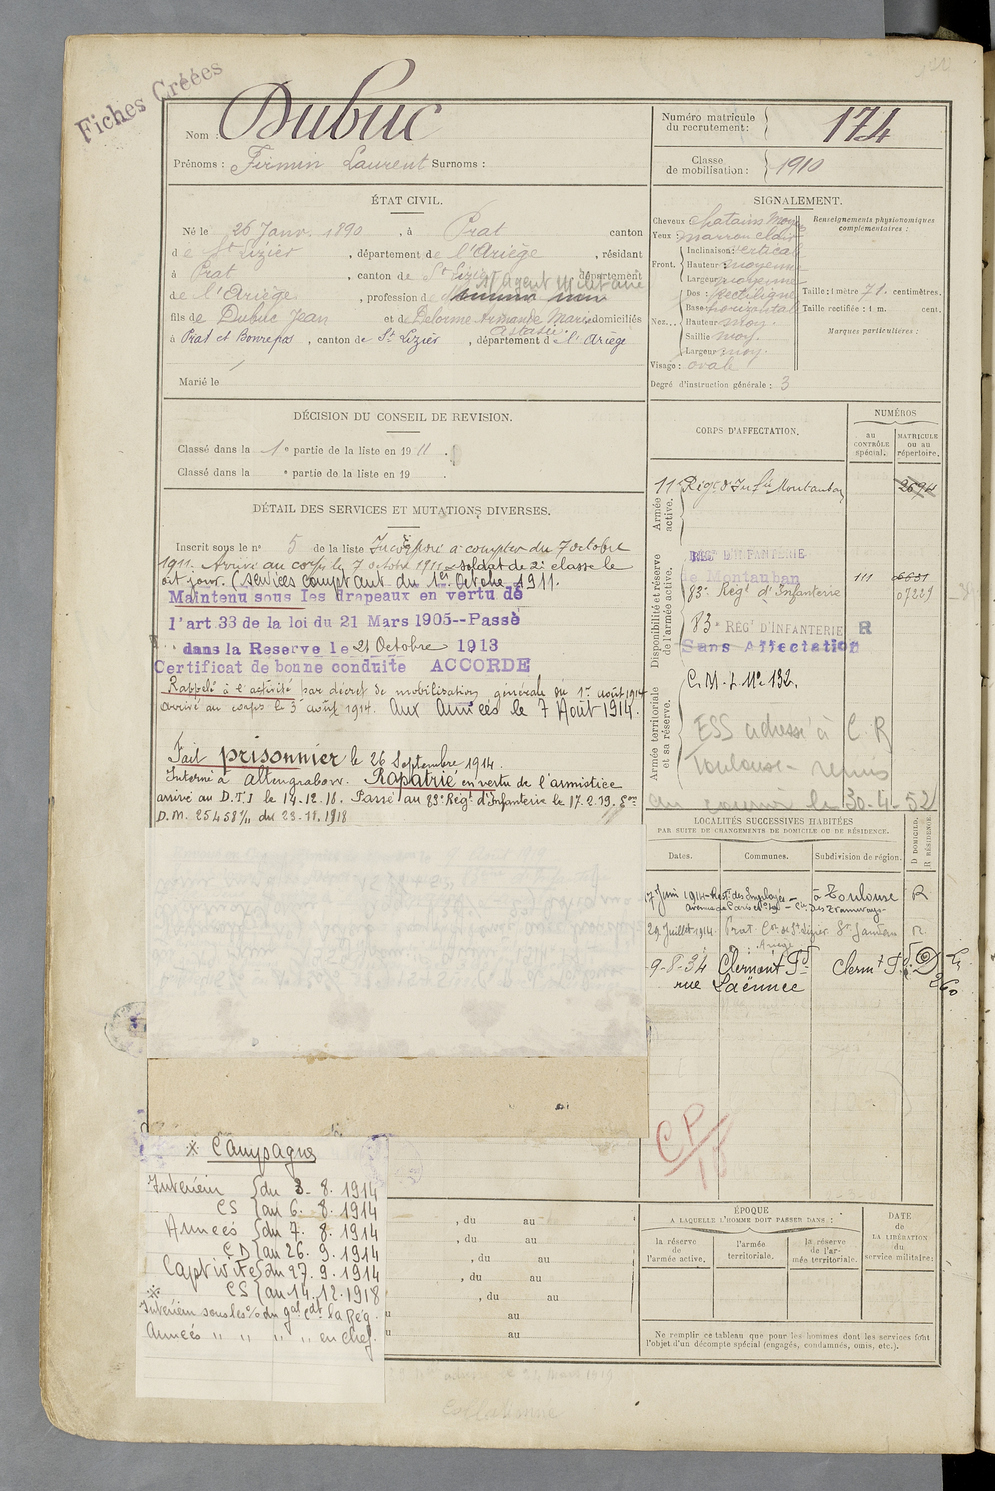 Fiches Créées
Nom : Dubuc
Prénoms : Firmin Laurent Surnoms :
Numéro matricule du recrutement : 174
Classe de mobilisation : 1910
ÉTAT CIVIL.
Né le 26 Janv. 1890, à Prat canton
de St Lizier, département de l'Ariège, résidant
à Prat, canton de St Lizier département
de l'Ariège, profession de Agent Militaire
fils de Dubuc Jean et de Delorme Armande Marie domiciliés
Astasie
à Prat et Bonrepos, canton de St Lizier, département d l'Ariège
Marié le
SIGNALEMENT.
Cheveux chatains moy
Yeux marron clair
Front. Inclinaison: vertical
Hauteur moyenne
Largeur moyenne
Nez... Dos : Rectiligne
Base horizontal
Hauteur moy.
Saillie moy.
Largeur moy.
Visage : ovale
Renseignements physionomiques complémentaires :
Taille : 1 mètre 71. centimètres.
Taille rectifiée : 1 m. cent.
Marques particulières :
Degré d'instruction générale : 3
DÉCISION DU CONSEIL DE REVISION.
Classé dans la 1e partie de la liste en 1911.
Classé dans la e partie de la liste en 19
DÉTAIL DES SERVICES ET MUTATIONS DIVERSES.
Inscrit sous le n° 5 de la liste Incorporé à compter du 7 octobre
1911. Arrivé au corps le 7 octobre 1911 soldat de 2e classe le
dit jour. (Services comptant du 1er Octobre 1911.
Maintenu sous les drapeaux en vertu de
l'art 33 de la loi du 21 Mars 1905--Passé
dans la Reserve le 21 Octobre 1913
Certificat de bonne conduite ACCORDE
Rappelé à l'activité par décret de mobilisation générale du 1er août 1914
arrivé au corps le 3 août 1914. Aux Armées le 7 Août 1914.
Fait prisonnier le 26 Septembre 1914.
Interné à Altengrabow. Rapatrié en vertu de l'armistice
arrivé au D.T.I le 14.12.18. Passé au 83e Régt d'Infanterie le 17.2.19.
D.M. 25458 du 23.11.1918
CORPS D'AFFECTATION.
NUMÉROS
au CONTRÔLE spécial.
MATRICULE ou au répertoire.
Armée active.
11e Régt d'Infie Montauban 2694
Disponibilité et réserve de l'armée active.
RÉGt D'INFANTERIE
de Montauban 111
83e Régt d'Infanterie 07229
83e RÉGt D'INFANTERIE R
Sans Affectation
Armée territoriale et sa réserve.
C.M.I. 11e 132.
ESS adressé à C.R
Toulouse - repris
au courrier le 30-4-52
LOCALITÉS SUCCESSIVES HABITÉES
PAR SUITE DE CHANGEMENTS DE DOMICILE OU DE RÉSIDENCE.
Dates. Communes. Subdivision de région. D DOMICILE. R RÉSIDENCE.
7 Juin 1914 Rest. des Employés à Toulouse R
29 Juillet 1914 Prat Con de St Lizier St Gaudens R.
Ariège
9-8-34 Clermont Fd Clermt Fd D
rue Laënnec
CP
* Campagne
Intérieur du 3. 8. 1914
CS au 6. 8. 1914
Armées du 7. 8. 1914
CD au 26. 9. 1914
Captivité du 27. 9. 1914
CS au 14. 12. 1918
Armées " " " en chef.
, du au
, du au
, du au
, du au
, du au
au
au
ÉPOQUE
A LAQUELLE L'HOMME DOIT PASSER DANS :
la réserve de l'armée active.
l'armée territoriale.
la réserve de l'armée territoriale.
DATE de LA LIBÉRATION du service militaire :
Ne remplir ce tableau que pour les hommes dont les services font
l'objet d'un décompte spécial (engagés, condamnés, omis, etc.).